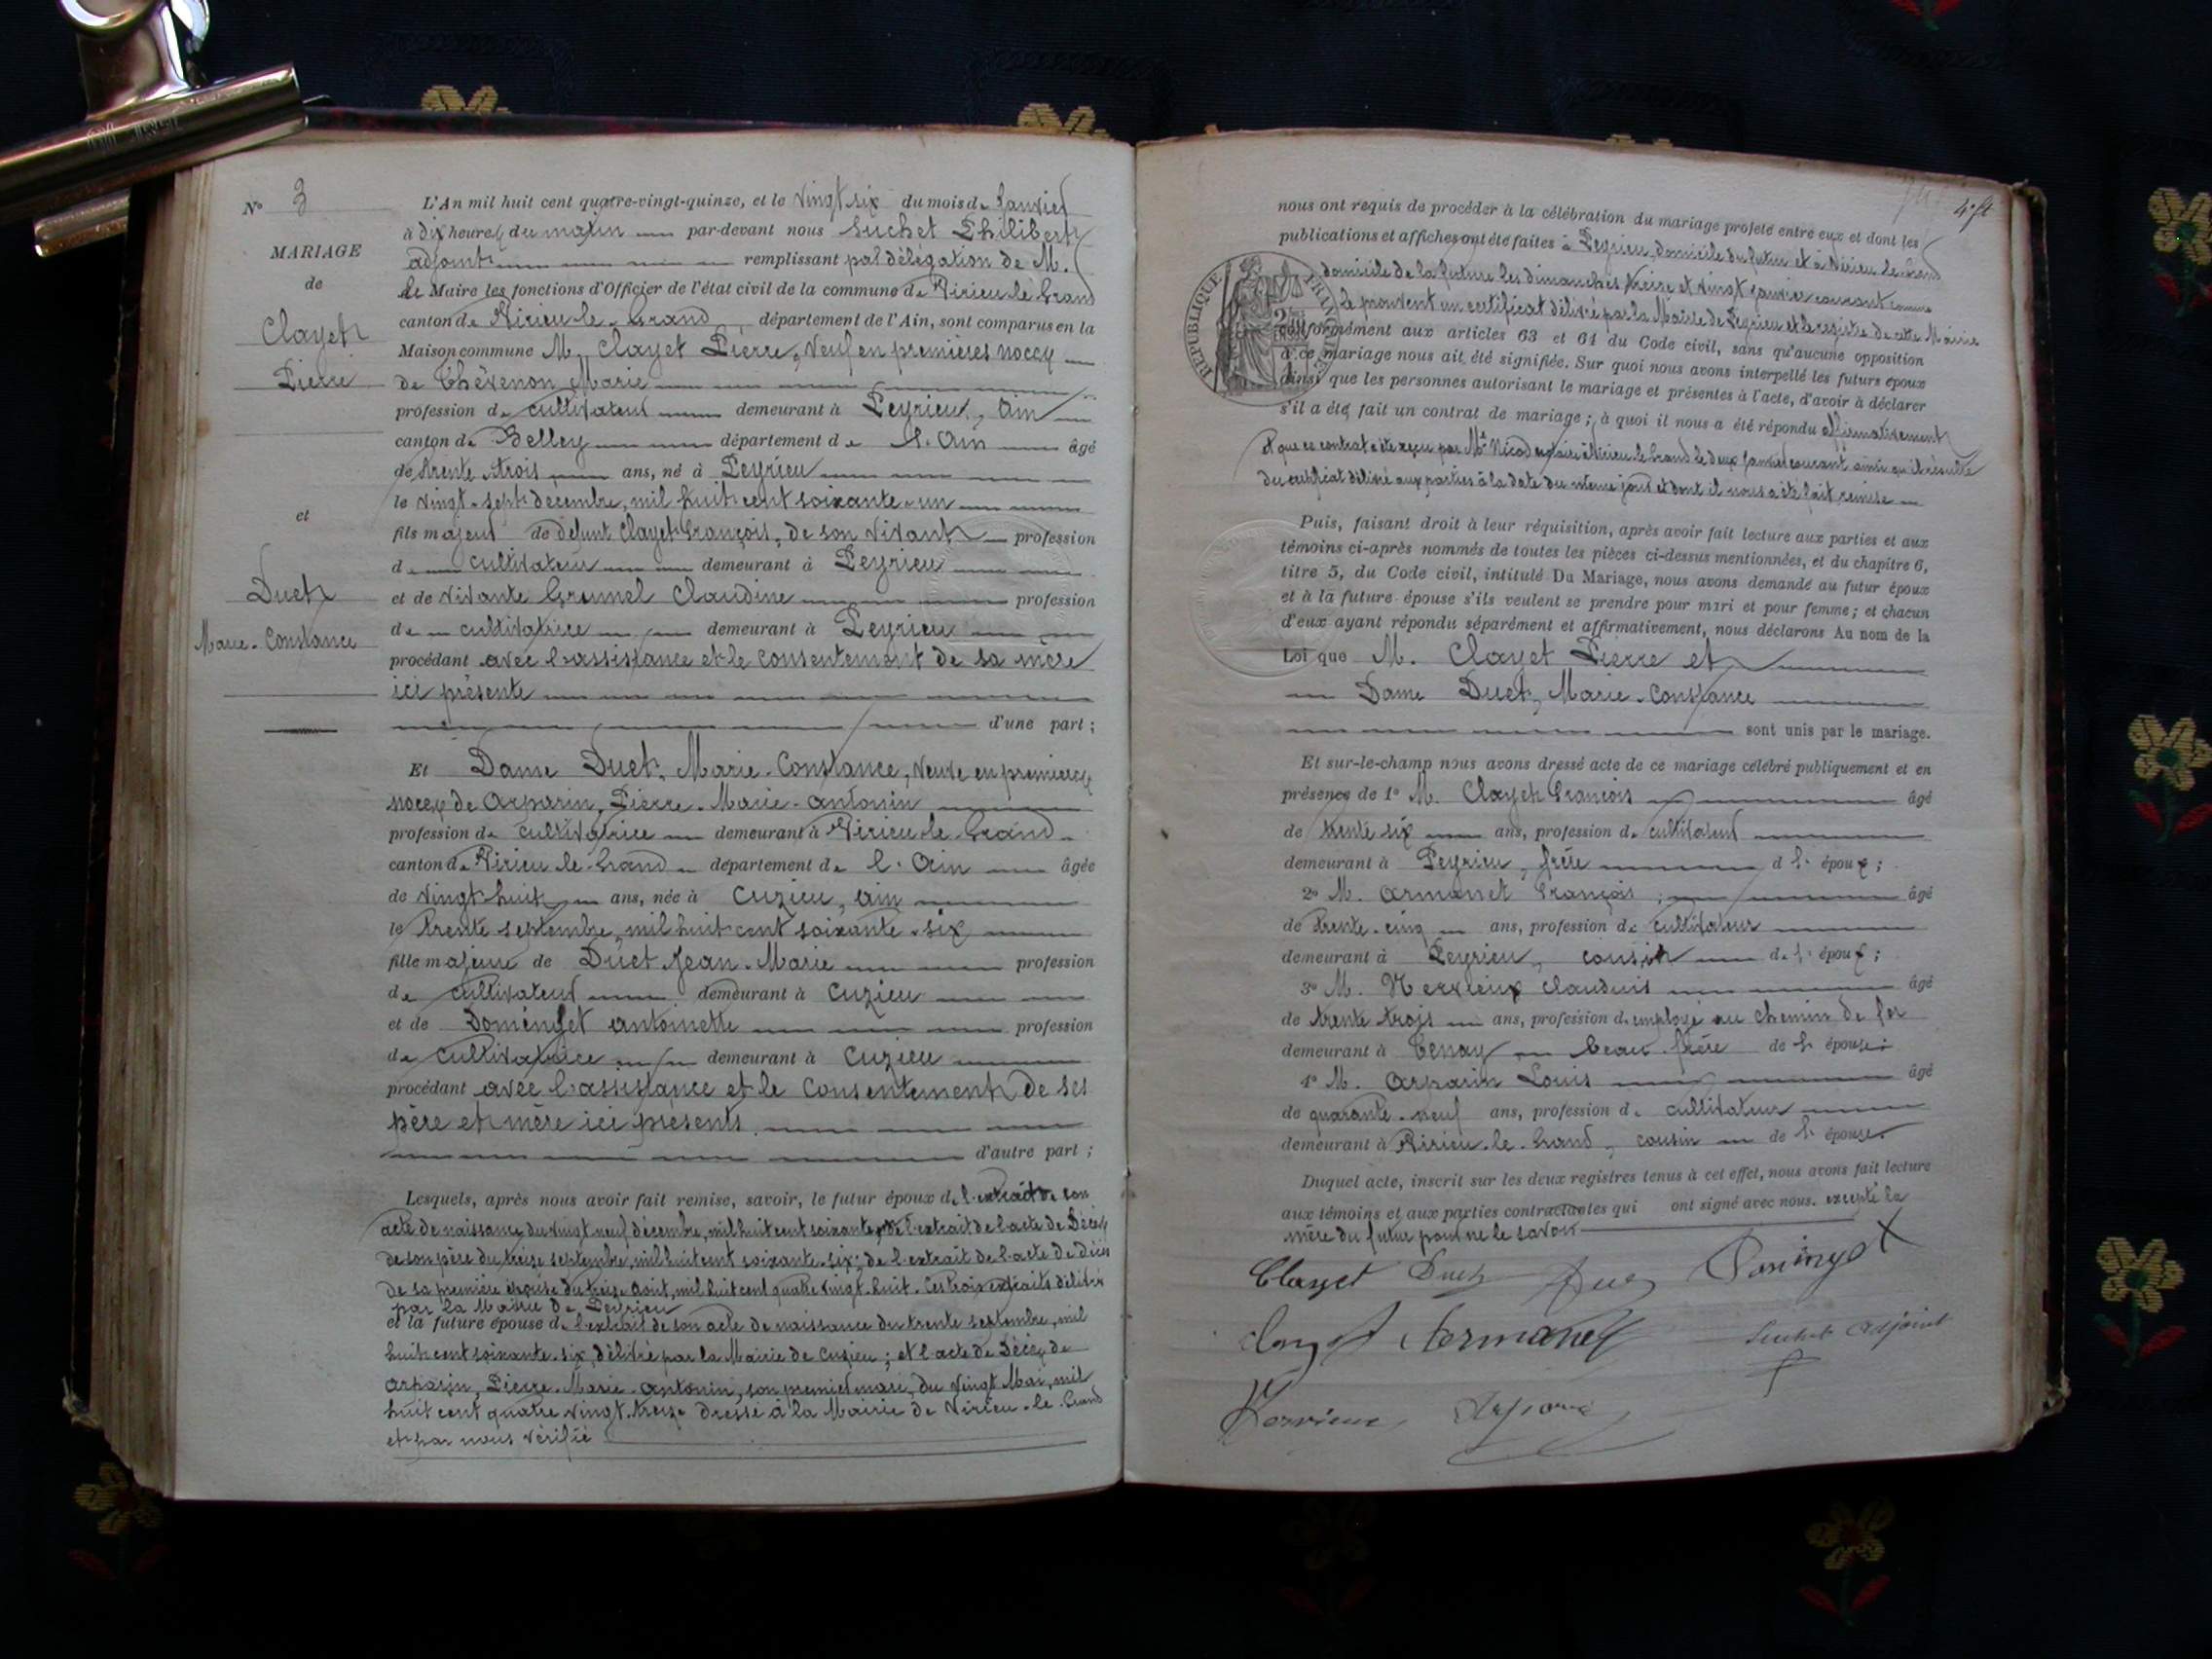 N° 3
MARIAGE
de
Clayet
Pierre
et
Duet
Marie-Constance
L'An mil huit cent quatre-vingt-quinze, et le vingt six du mois de Janvier
à dix heures du matin par-devant nous Suchet Philibert
adjoint remplissant par délégation de M.
le Maire les fonctions d'Officier de l'état civil de la commune de Virieu-le-Grand
canton de Virieu-le-Grand département de l'Ain, sont comparus en la
Maison commune M. Clayet Pierre, veuf en premières noces
de Thévenon Marie
profession de cultivateur demeurant à Peyrieu, Ain
canton de Belley département de l'Ain âgé
de trente-trois ans, né à Peyrieu
le vingt-sept décembre, mil huit cent soixante-un
fils majeur de défunt Clayet François, de son vivant profession
de cultivateur demeurant à Peyrieu
et de vivante Claudine profession
de cultivatrice demeurant à Peyrieu
procédant avec l'assistance et le consentement de sa mère
ici présente
d'une part;
Et Dame Duet, Marie-Constance, veuve en premières
noces de Arparin, Pierre-Marie-Antonin
profession de cultivatrice demeurant à Virieu-le-Grand
canton de Virieu-le-Grand département de l'Ain âgée
de vingt-huit ans, née à Cuzieu, Ain
le trente septembre, mil huit cent soixante-six
fille majeure de Duet Jean-Marie profession
de cultivateur demeurant à Cuzieu
et de Domenget Antoinette profession
de cultivatrice demeurant à Cuzieu
procédant avec l'assistance et le consentement de ses
père et mère ici présents
d'autre part;
Lesquels, après nous avoir fait remise, savoir, le futur époux de l'extrait de son
acte de naissance du vingt neuf décembre, mil huit cent soixante un de l'extrait de l'acte de décès
de son père du treize septembre, mil huit cent soixante-six; de l'extrait de l'acte de décès
de sa première épouse du treize Août, mil huit cent quatre vingt-huit. Ces trois extraits délivrés
par la Mairie de Peyrieu
et la future épouse de l'extrait de son acte de naissance du trente septembre, mil
huit cent soixante-six, délivré par la Mairie de Cuzieu; et l'acte de décès de
Arparin, Pierre-Marie-Antonin, son premier mari, du vingt Mai, mil
huit cent quatre vingt-treize dressé à la Mairie de Virieu-le-Grand
et par nous vérifié
nous ont requis de procéder à la célébration du mariage projeté entre eux et dont les
publications et affiches ont été faites à Peyrieu, domicile du futur et à Virieu-le-Grand
domicile de la future les dimanches treize et vingt janvier courant comme
le prouvent un certificat délivré par la Mairie de Peyrieu et le registre de cette Mairie
RÉPUBLIQUE FRANÇAISE
conformément aux articles 63 et 64 du Code civil, sans qu'aucune opposition
à ce mariage nous ait été signifiée. Sur quoi nous avons interpellé les futurs époux
ainsi que les personnes autorisant le mariage et présentes à l'acte, d'avoir à déclarer
s'il a été fait un contrat de mariage; à quoi il nous a été répondu affirmativement
et que ce contrat a été reçu par Me Nicod notaire à Virieu-le-Grand le deux Janvier courant ainsi qu'il résulte
du certificat délivré aux parties à la date du même jour et dont il nous a été fait remise
Puis, faisant droit à leur réquisition, après avoir fait lecture aux parties et aux
témoins ci-après nommés de toutes les pièces ci-dessus mentionnées, et du chapitre 6,
titre 5, du Code civil, intitulé Du Mariage, nous avons demandé au futur époux
et à la future épouse s'ils veulent se prendre pour mari et pour femme; et chacun
d'eux ayant répondu séparément et affirmativement, nous déclarons Au nom de la
Loi que M. Clayet Pierre et
Dame Duet, Marie-Constance
sont unis par le mariage.
Et sur-le-champ nous avons dressé acte de ce mariage célébré publiquement et en
présence de 1° M. Clayet François âgé
de trente six ans, profession de cultivateur
demeurant à Peyrieu, frère de l'époux;
2° M. Armanet François âgé
de trente-cinq ans, profession de cultivateur
demeurant à Peyrieu, cousin de l'époux;
3° M. Claudius âgé
de trente trois ans, profession d'employé au chemin de fer
demeurant à Tenay beau-frère de l'épouse;
4° M. Arparin Louis âgé
de quarante-neuf ans, profession de cultivateur
demeurant à Virieu-le-Grand, cousin de l'épouse.
Duquel acte, inscrit sur les deux registres tenus à cet effet, nous avons fait lecture
aux témoins et aux parties contractantes qui ont signé avec nous. excepté la
mère du futur pour ne le savoir
Clayet Duet Duet Domenget
Clayet Armanet Suchet Adjoint
Arparin